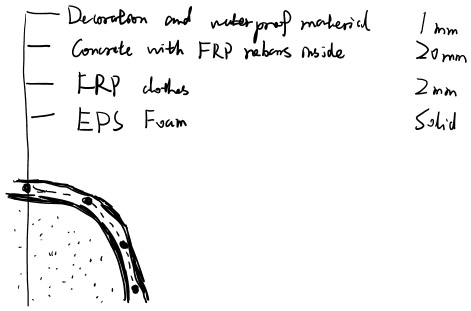 Decoration and waterproof material 1mm
Concrete with FRP rebars inside 20mm
FRP clothes 2mm
EPS Foam Solid